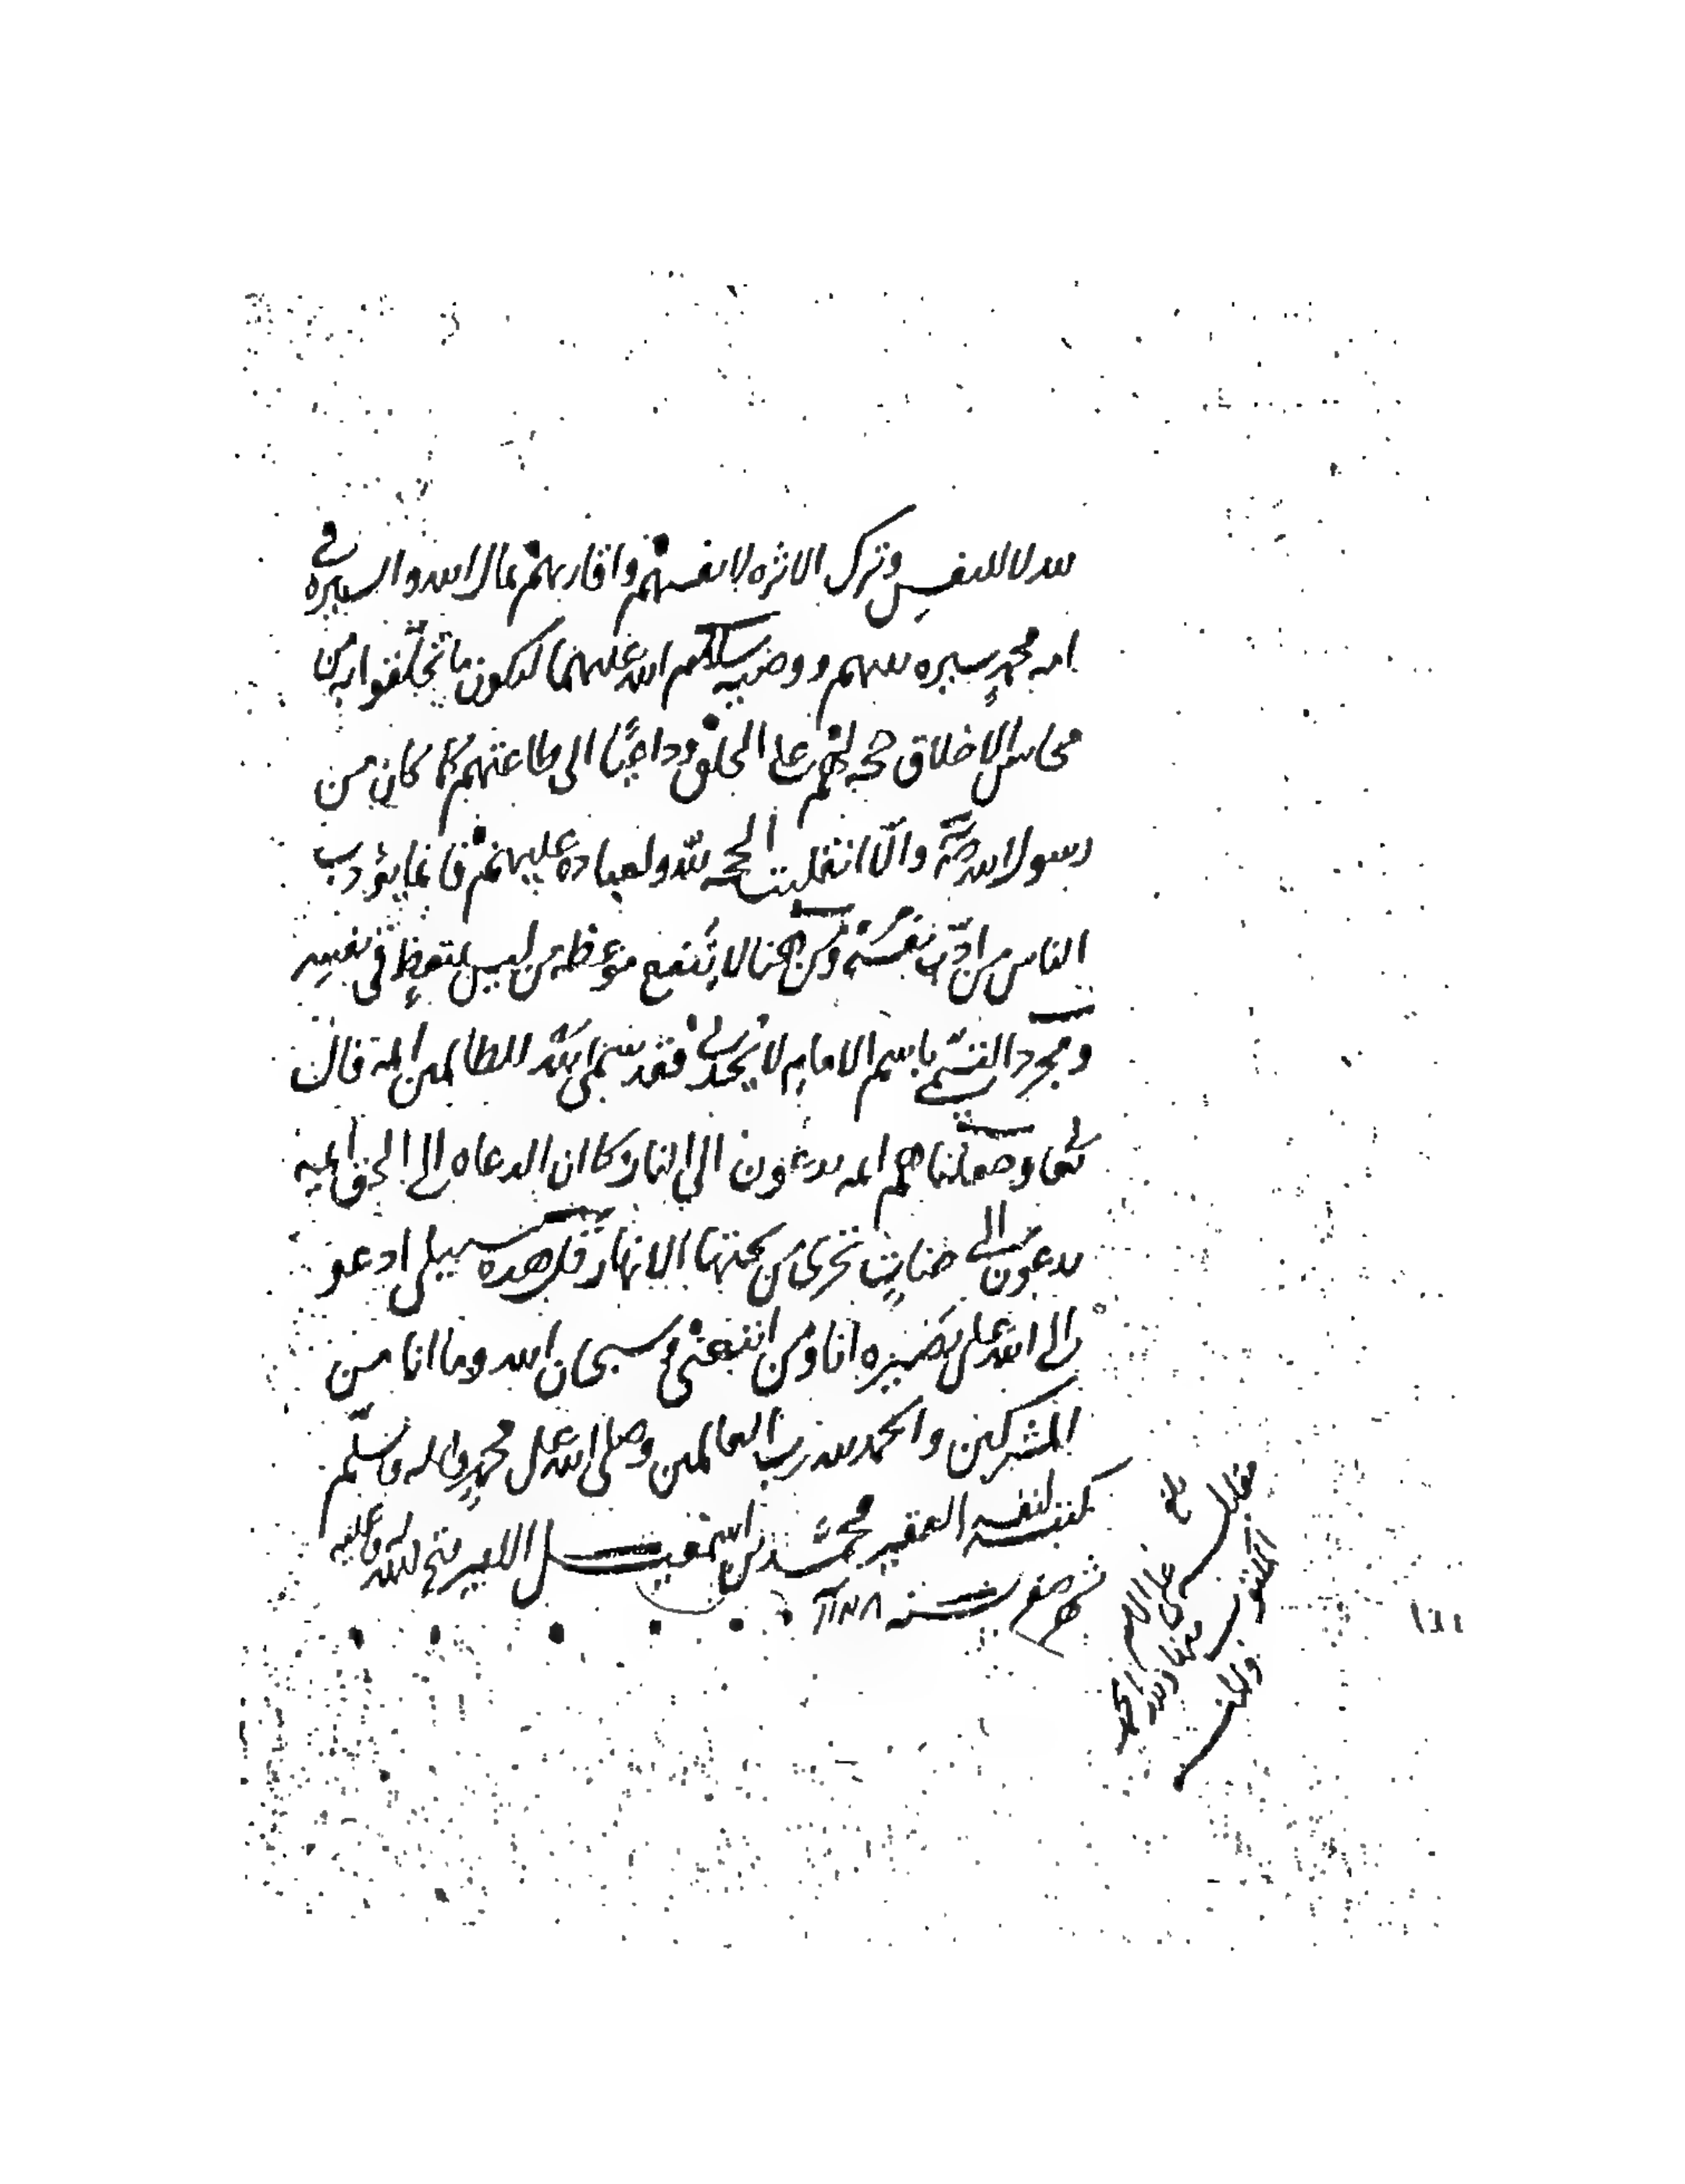 لله لا للنفس وترك الاثره لانفسهم واقاربهم بمال الله والسيره في
امه محمد سيره نبيهم ووصيه سلام الله عليهما ليكون ما تخلقوا به من
محاسن الاخلاق حجه لهم على الخلق وداعيًا الى طاعتهم كما كان من
رسول الله صلم والّا انقلبت الحجه لله ولعباده عليهم فانما يؤدب
الناس من ادّب نفسه ومن هنا لا تنفع موعظه من ليس بمتعظٍ في نفسه
ومجرد التسمي باسم الامام لا يجدي فقد سمى الله للظالمين ائمة قال
تعالى وجعلناهم ائمه يدعون الى النار وكما ان الدعاه الى الحق ائمه
يدعون الى جناتٍ تجري من تحتها الانهار قل هذه سبيلي ادعو
الى الله على بصيره انا ومن اتبعني وسبحان الله وما انا من
المشركين والحمد لله رب العالمين وصلى الله على محمدٍ واله وسلّم
كتبه لنفسه الفقير محمد بن اسمعيل الامير فتح الله له وعليه
شهر صفر سنه ١١٤٨
بلغ
مقابله
على الام
المكتوب
منها ولله الحمد